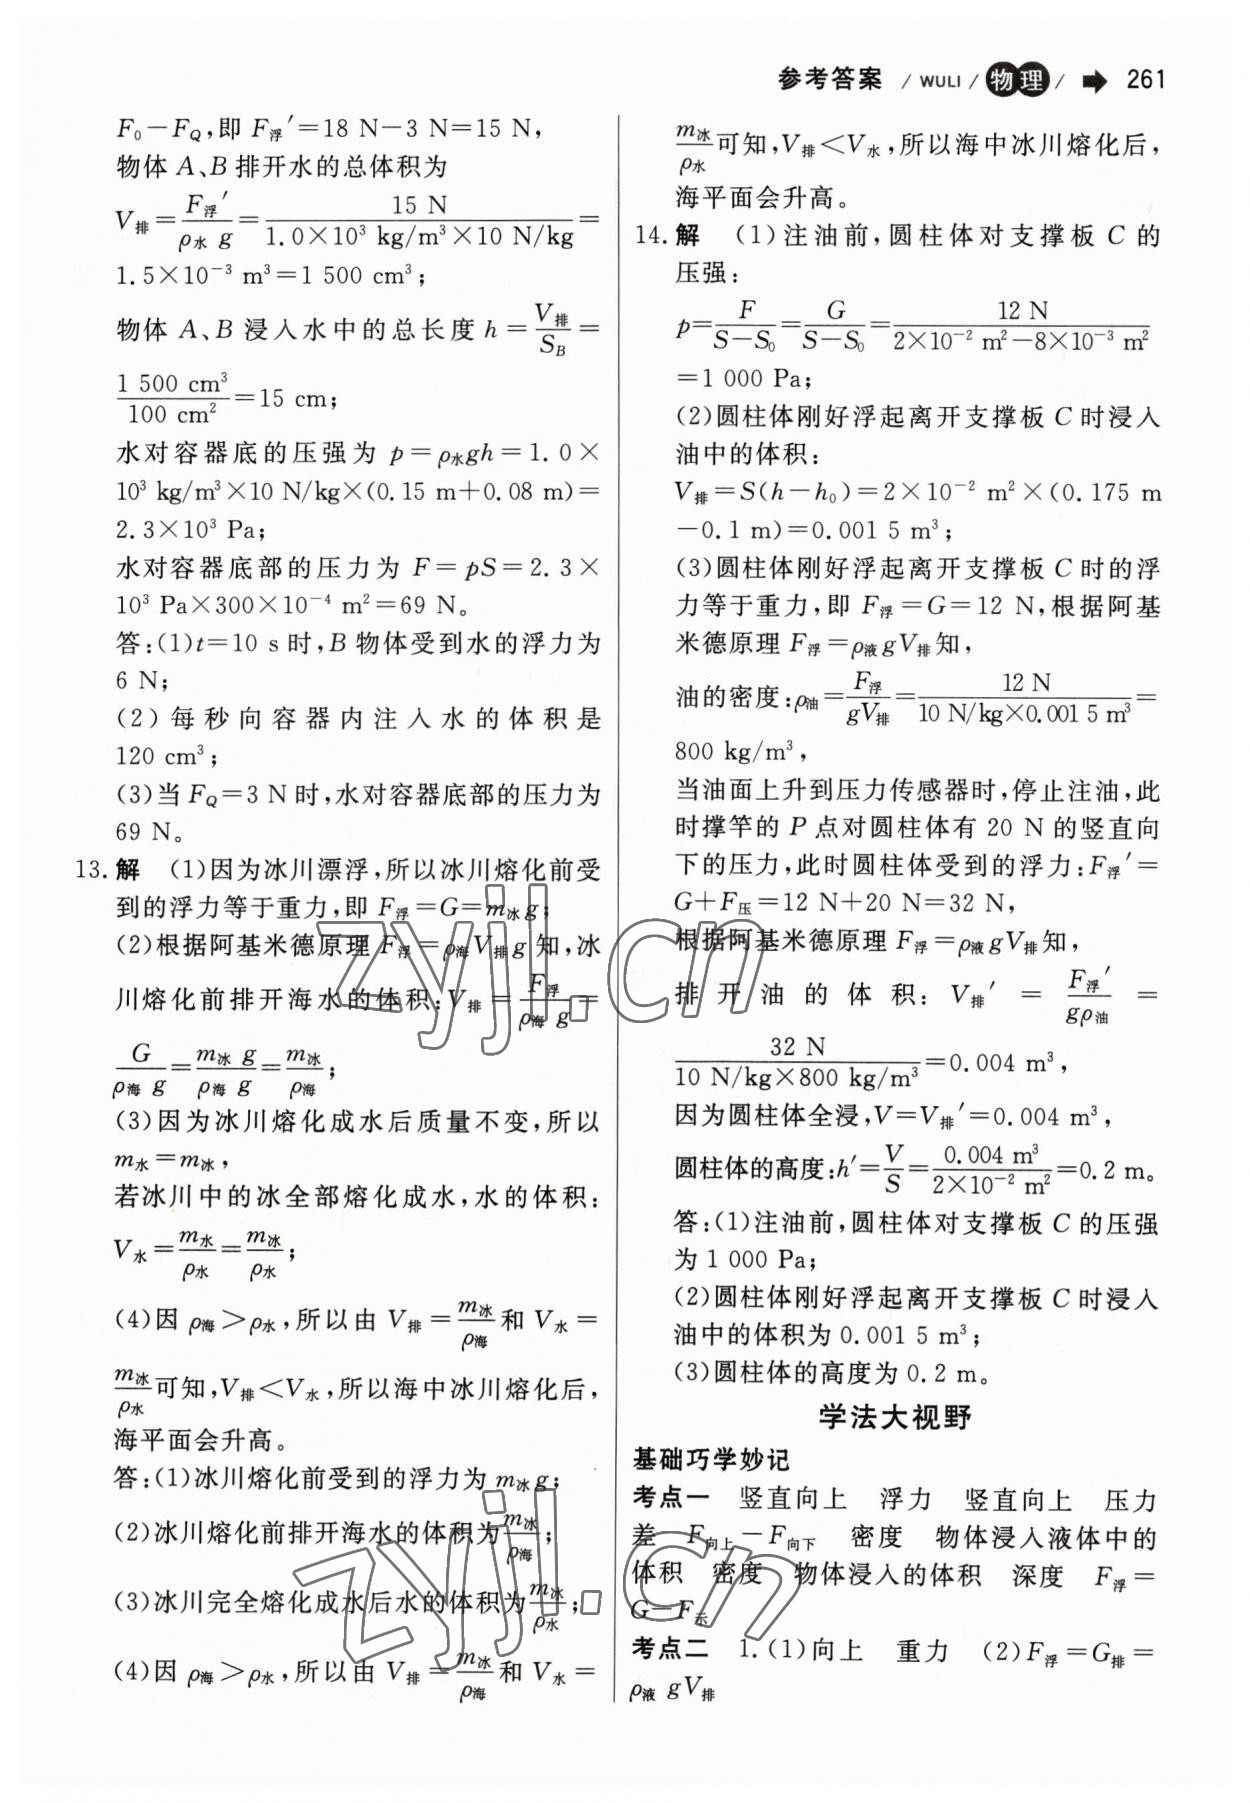 参考答案 / WULI / 物理 / 261
F₀－F_Q,即 F浮′＝18 N－3 N＝15 N,
物体 A、B 排开水的总体积为
V排＝F浮′/(ρ水 g)＝15 N/(1.0×10³ kg/m³×10 N/kg)＝
1.5×10⁻³ m³＝1 500 cm³;
物体 A、B 浸入水中的总长度 h＝V排/S_B＝
1 500 cm³/100 cm²＝15 cm;
水对容器底的压强为 p＝ρ水gh＝1.0×
10³ kg/m³×10 N/kg×(0.15 m＋0.08 m)＝
2.3×10³ Pa;
水对容器底部的压力为 F＝pS＝2.3×
10³ Pa×300×10⁻⁴ m²＝69 N。
答:(1)t＝10 s时,B 物体受到水的浮力为
6 N;
(2)每秒向容器内注入水的体积是
120 cm³;
(3)当 F_Q＝3 N时,水对容器底部的压力为
69 N。
13.解 (1)因为冰川漂浮,所以冰川熔化前受
到的浮力等于重力,即 F浮＝G＝m冰g;
(2)根据阿基米德原理 F浮＝ρ海V排g 知,冰
川熔化前排开海水的体积:V排＝F浮/(ρ海 g)＝
G/(ρ海 g)＝m冰 g/(ρ海 g)＝m冰/ρ海;
(3)因为冰川熔化成水后质量不变,所以
m水＝m冰,
若冰川中的冰全部熔化成水,水的体积:
V水＝m水/ρ水＝m冰/ρ水;
(4)因 ρ海＞ρ水,所以由 V排＝m冰/ρ海和 V水＝
m冰/ρ水可知,V排＜V水,所以海中冰川熔化后,
海平面会升高。
答:(1)冰川熔化前受到的浮力为 m冰g;
(2)冰川熔化前排开海水的体积为m冰/ρ海;
(3)冰川完全熔化成水后水的体积为m冰/ρ水;
(4)因 ρ海＞ρ水,所以由 V排＝m冰/ρ海和 V水＝
m冰/ρ水可知,V排＜V水,所以海中冰川熔化后,
海平面会升高。
14.解 (1)注油前,圆柱体对支撑板 C 的
压强:
p＝F/(S－S₀)＝G/(S－S₀)＝12 N/(2×10⁻² m²－8×10⁻³ m²)
＝1 000 Pa;
(2)圆柱体刚好浮起离开支撑板 C 时浸入
油中的体积:
V排＝S(h－h₀)＝2×10⁻² m²×(0.175 m
－0.1 m)＝0.001 5 m³;
(3)圆柱体刚好浮起离开支撑板 C 时的浮
力等于重力,即 F浮＝G＝12 N,根据阿基
米德原理 F浮＝ρ液gV排知,
油的密度:ρ油＝F浮/(gV排)＝12 N/(10 N/kg×0.001 5 m³)＝
800 kg/m³,
当油面上升到压力传感器时,停止注油,此
时撑竿的 P 点对圆柱体有 20 N 的竖直向
下的压力,此时圆柱体受到的浮力:F浮′＝
G＋F压＝12 N＋20 N＝32 N,
根据阿基米德原理 F浮＝ρ液gV排知,
排开油的体积:V排′＝F浮′/(gρ油)＝
32 N/(10 N/kg×800 kg/m³)＝0.004 m³,
因为圆柱体全浸,V＝V排′＝0.004 m³,
圆柱体的高度:h′＝V/S＝0.004 m³/(2×10⁻² m²)＝0.2 m。
答:(1)注油前,圆柱体对支撑板 C 的压强
为 1 000 Pa;
(2)圆柱体刚好浮起离开支撑板 C 时浸入
油中的体积为 0.001 5 m³;
(3)圆柱体的高度为 0.2 m。
学法大视野
基础巧学妙记
考点一 竖直向上 浮力 竖直向上 压力
差 F向上－F向下 密度 物体浸入液体中的
体积 密度 物体浸入的体积 深度 F浮＝
G－F示
考点二 1.(1)向上 重力 (2)F浮＝G排＝
ρ液 gV排
zyjl.cn
zyjl.cn